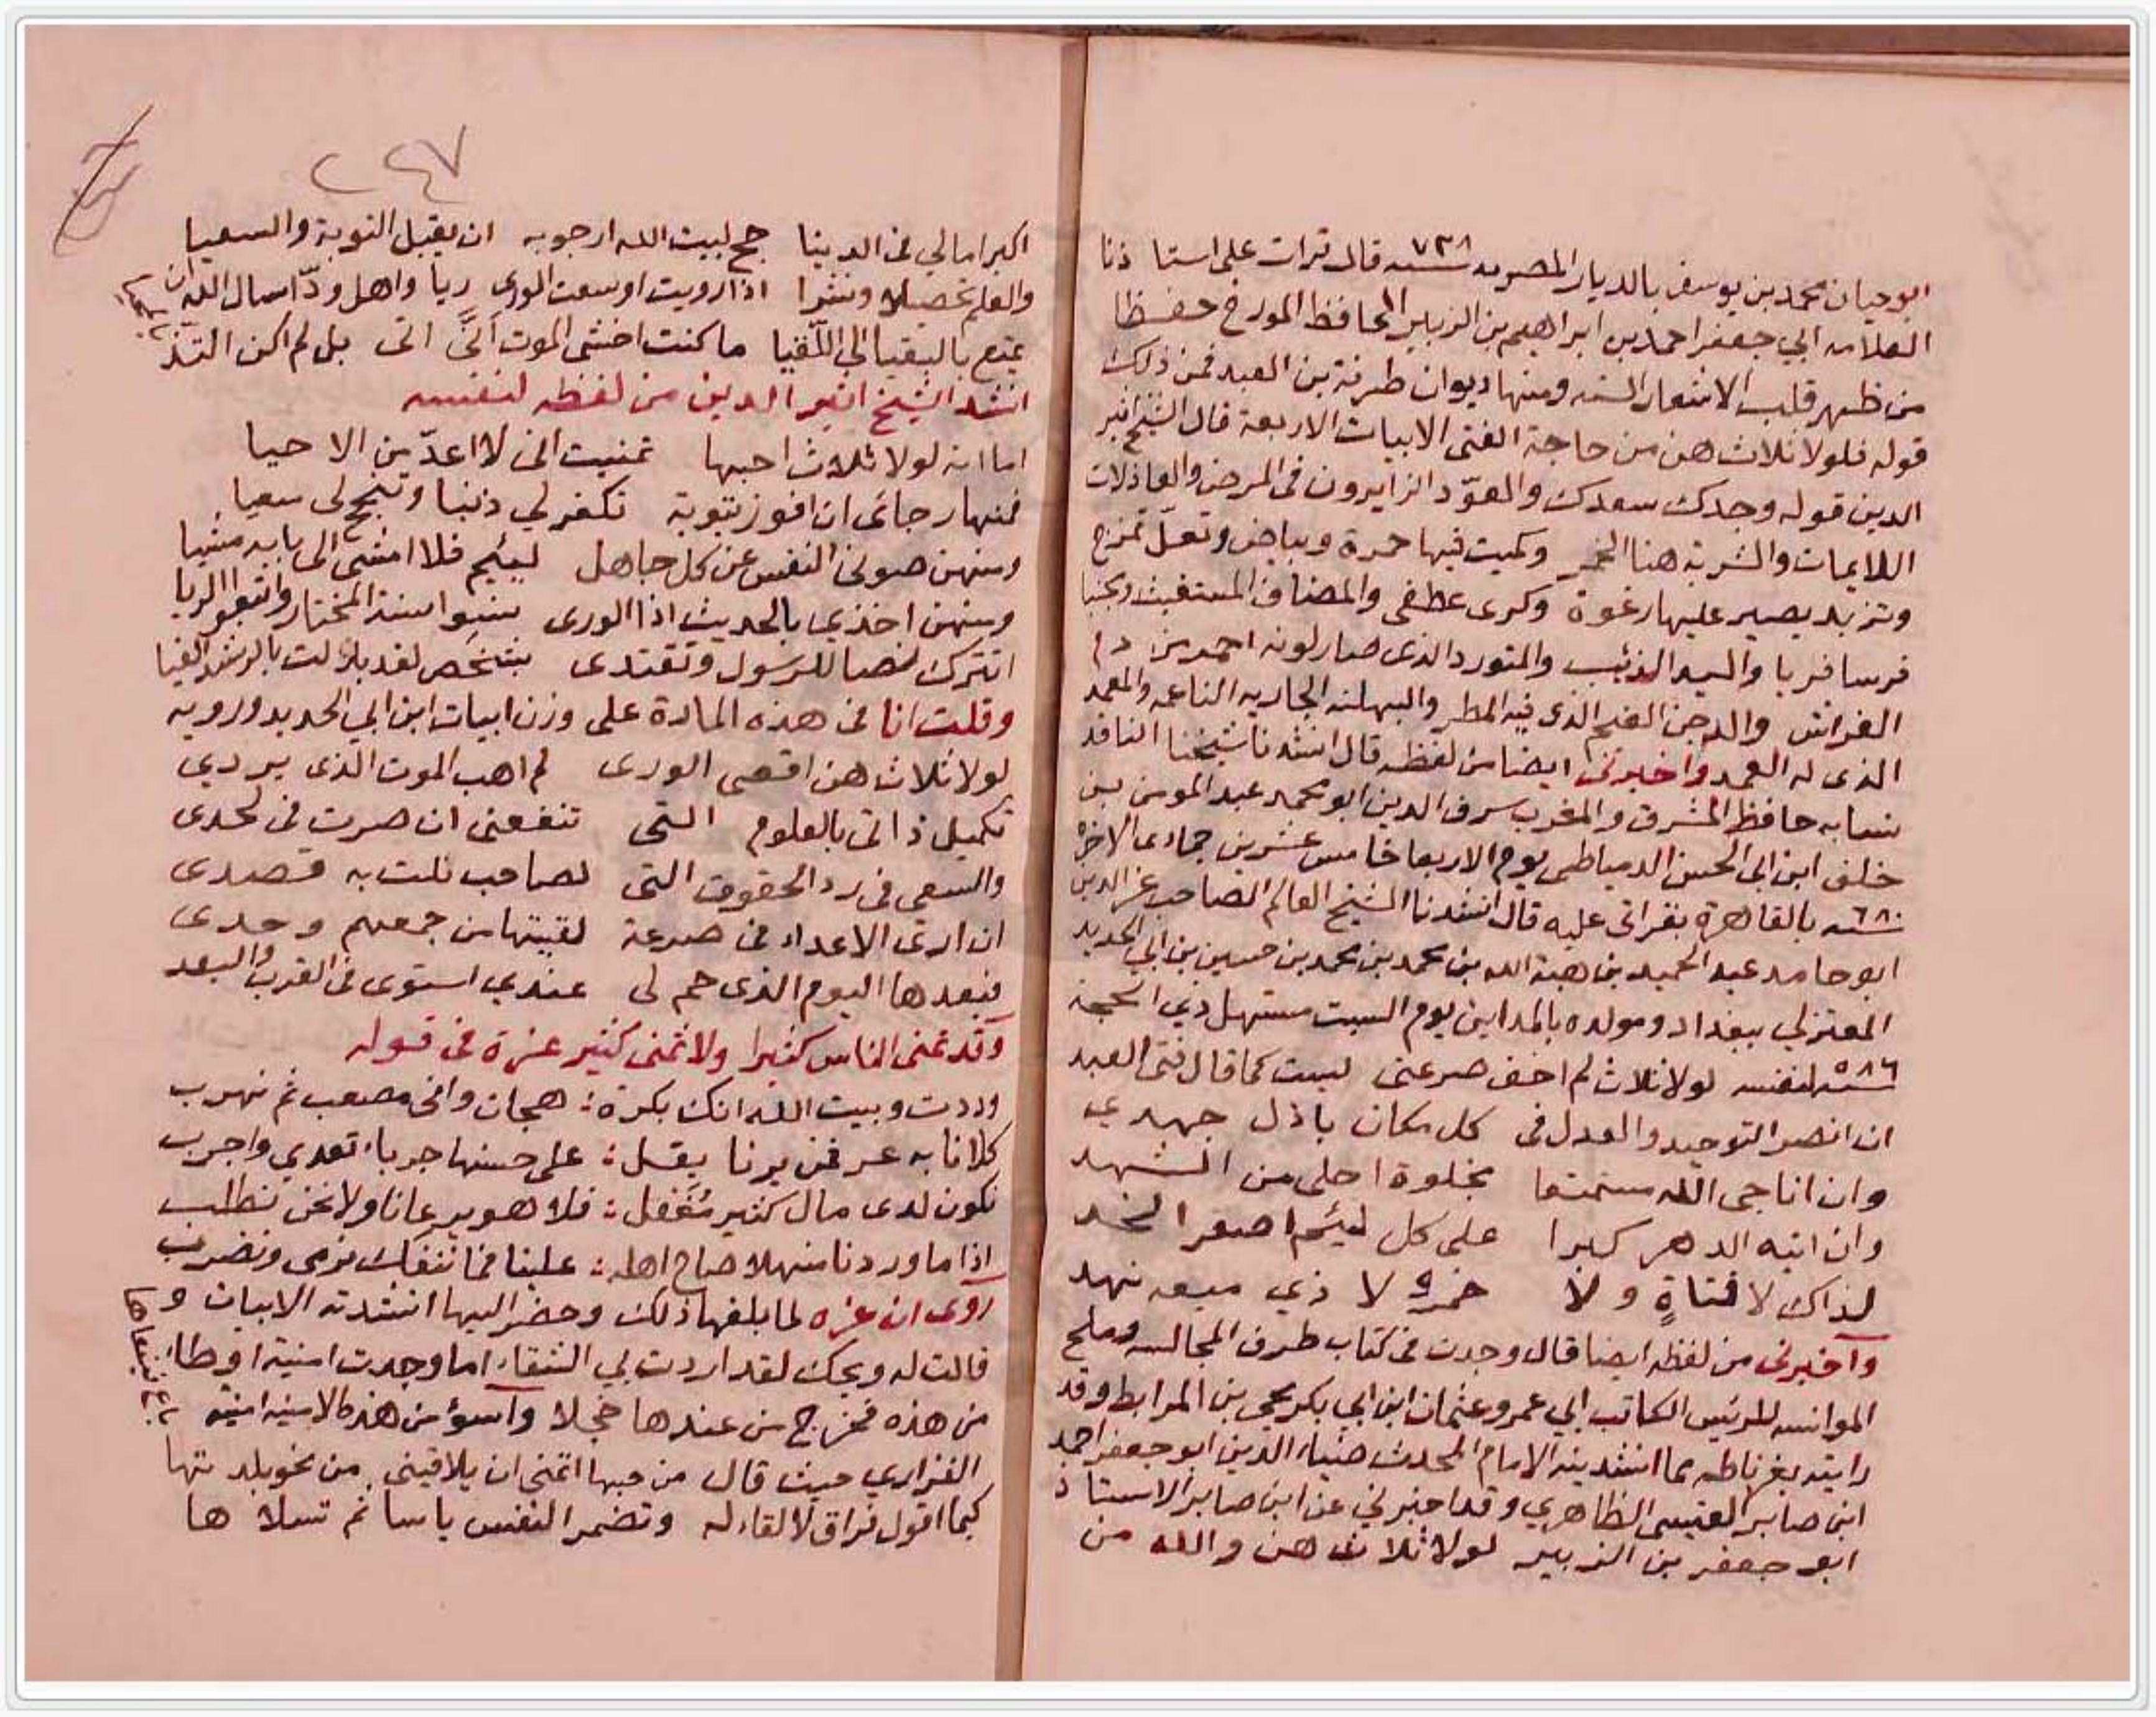 ابو حيان محمد بن يوسف بالديار المصريه سنه ٧٣٨ قال قرات على استا ذنا
العلامه ابي جعفر احمد بن ابراهيم بن الزبير الحافظ المورخ حفظا
من ظهر قلب الاشعار السته ومنها ديوان طرفة بن العبد فمن ذلك
قوله فلولا ثلاث هن من حاجة الفتى الابيات الاربعة قال الشيخ اثير
الدين قوله وجدك سعدك والعوّد الزايرون فى المرض والعاذلات
اللايمات والشربة هنا الخمر وكميت فيها حمرة وبياض وتعلّ تمزج
وتزبد يصير عليها رغوة وكرى عطفى والمضاف المستغيث ومحنبا
فرسا فربا والسيد الذئب والمتورد الذى صار لونه احمر من دم
الفراش والدجن الغيم الذى فيه المطر والبهكنه الجاريه الناعمه والمعمد
الذى له العمد واخبرنى ايضا من لفظه قال انشدنا شيخنا الناقد
نسابه حافظ المشرق والمغرب شرف الدين ابو محمد عبد المومن بن
خلف ابن ابى الحسن الدمياطى يوم الاربعا خامس عشرين جمادى الاخره
سنه ٦٨٠ بالقاهرة بقراتى عليه قال انشدنا الشيخ العالم الصاحب عز الدين
ابو حامد عبد الحميد بن هبة الله بن محمد بن محمد بن حسين بن ابي الحديد
المعتزلي ببغداد ومولده بالمداين يوم السبت مستهل ذي الحجة
سنه ٥٨٦ لنفسه لولا ثلاث لم اخف صرعتى ليست كما قال فتى العبد
ان انصر التوحيد والعدل فى كل مكان باذل جهدي
وان اناجى الله مستمتعا بخلوة احلى من الشهد
وان اتيه الدهر كبرا على كل ليئم اصعر الخد
لذاك لا فتاةٍ ولا خمر ولا ذي ميعه نهد
وآخبرنى من لفظه ايضا قال وجدت فى كتاب طرف المجالسه وملح
الموانسه للرئيس الكاتب ابي عمرو عثمان ابن ابي بكر يحيى بن المرابط وقد
رايته بغرناطه مما انشدينه الامام المحدث ضياء الدين ابو جعفر احمد
ابن صابر القيسى الظاهري وقد اخبرني عن ابن صابر الاستاذ
ابو جعفر بن الزبير لولا ثلاث هن والله من
٢٤٧
اكبر امالي فى الدينا حج لبيت الله ارجو به ان يقبل التوبة والسعيا
والعلم تحصيلا ونشرا اذا رويت اوسعت الورى ريا واهل ودّ اسال الله ان
يمتع بالبقيا الى اللّقيا ما كنت اخشى الموت انّى اتى بل لم اكن التذ
انشد الشيخ اثير الدين من لفظه لنفسه
اما انه لولا ثلاث احبها تمنيت انى لا اعدّ من الاحيا
فمنها رجائى ان افوز بتوبة تكفر لي ذنبا وتنجح لى سعيا
ومنهن صونى النفس عن كل جاهل ليئيم فلا امشى الى بابه مشيا
ومنهن اخذي بالحديث اذا الورى نسوا سنة المختار واتبعوا الريا
اتترك نصا للرسول وتقتدى بشخص لقد بدلت بالرشد الغيا
وقلت انا فى هذه المادة على وزن ابيات ابن ابي الحديد ورويه
لولا ثلاث هن اقصى الورى لم اهب الموت الذى يردي
تكميل ذاتى بالعلوم التى تنفعنى ان صرت فى لحدى
والسعى فى رد الحقوق التى لصاحب نلت به قصدى
ان ارى الاعداء فى صرعة لقيتها من جمعهم وحدى
فبعدها اليوم الذى حم لى عندي استوى فى القرب والبعد
وقد تمنى الناس كثيرا ولا تمنى كثير عزة فى قوله
وددت وبيت الله انك بكرة : هجان وانى مصعب ثم نهرب
كلانا به عر فمن يرنا يقل : على حسنها جرباء تعدي واجرب
نكون لدى مال كثير مُغفل : فلا هو يرعانا ولا نحن نطلب
اذا ما وردنا منهلا صاح اهله : علينا فما ننفك نرمى ونضرب
روى ان عزه لما بلغها ذلك وحضر اليها انشدته الابيات و
قالت له ويحك لقد اردت بي الشقاء اما وجدت امنية اوطا
من هذه فخرج من عندها خجلا واسوؤ من هذه الامنيه امنية
الفزاري حيث قال من حبها اتمنى ان يلاقينى من نحو بلدتها
كيما اقول فراق لا لقاء له وتضمر النفس ياسا ثم تسلا ها